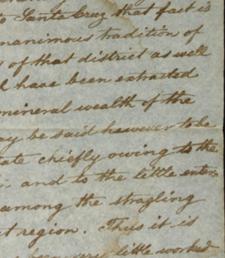 to Santa Cruz that fact is
unanimous tradition of
of that district as well
have been extracted
mineral wealth of the
may be said however to be
tate chiefly owing to the
and to the little enter
among the stragling
t region. Thus it is
been very little worked